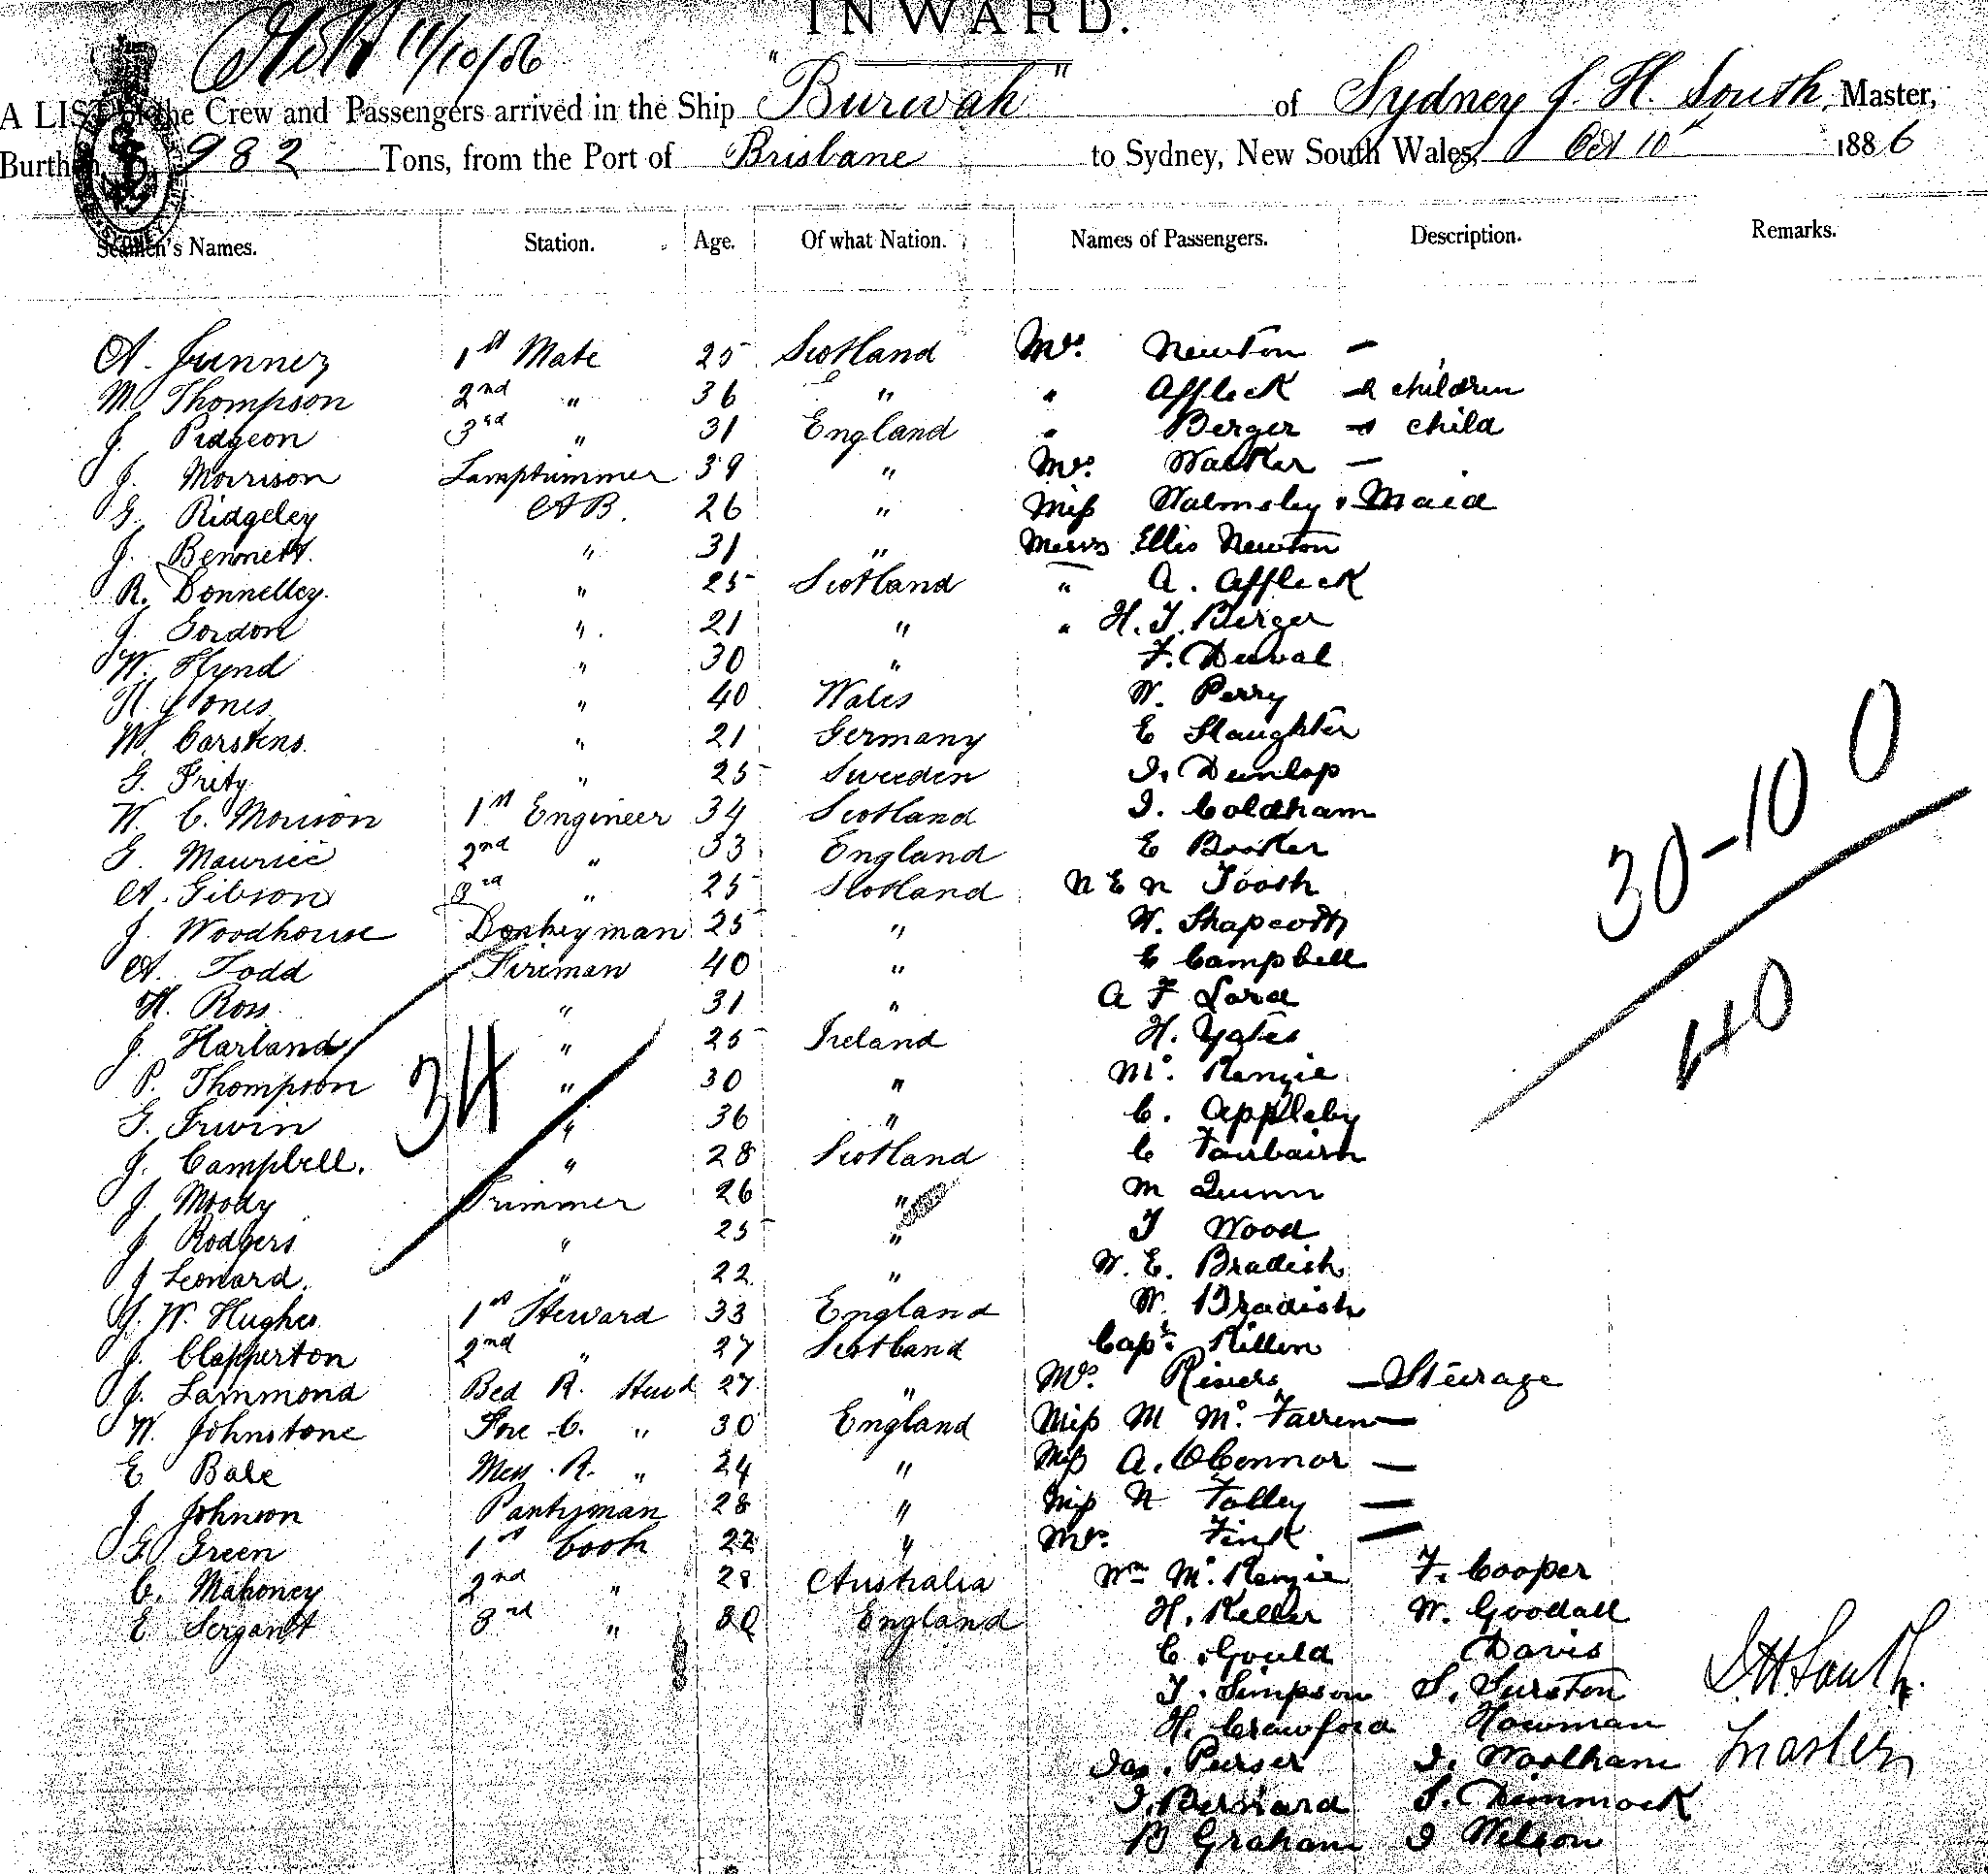 INWARD.
11/10/86
A LIST of the Crew and Passengers arrived in the Ship "Burwah" of Sydney J. H. South, Master,
Burthen 982 Tons, from the Port of Brisbane to Sydney, New South Wales, Oct 10th 1886
Seamen's Names. Station. Age. Of what Nation. Names of Passengers. Description. Remarks.
A. Junner 1st Mate 25 Scotland Mrs. Newton —
M. Thompson 2nd " 36 " " Affleck & children
J. Pidgeon 3rd " 31 England " Berger & child
J. Morrison Lamptrimmer 39 " Mrs. Walker —
G. Ridgeley AB. 26 " Miss Walmsley & Maid
J. Bennett. " 31 " Messrs Ellis Newton
R. Donnelley. " 25 Scotland " A. Affleck
J. Gordon " 21 " " H. J. Berger
W. Hynd " 30 " F. Duval
H. Jones " 40 Wales W. Perry
W. Carstens. " 21 Germany E Slaughter
G. Fritz " 25 Sweden J. Dunlop
W. C. Morison 1st Engineer 34 Scotland J. Coldham
G. Maurice 2nd " 33 England E Booker
A. Gibson 3rd " 25 Scotland N E N Tooth
J. Woodhouse Donkeyman 25 " W. Shapcott
A. Todd Fireman 40 " E Campbell
H. Ross " 31 " A F Lord
J. Harland " 25 Ireland H. Yates
P. Thompson " 30 " Mc. Kenzie
G. Irwin " 36 " C. Appleby
J. Campbell. " 28 Scotland C Fairbairn
J. Moody Trimmer 26 " M Quinn
J Rodgers " 25 " T Wood
J Leonard. " 22 " W. E. Bradish
J. W. Hughes 1st Steward 33 England W. Bradish
J. Clapperton 2nd " 27 Scotland Capt. Killen
J. Lammond Bed R. Stew'd 27 " Mrs. — Steerage
W. Johnstone Fore C. " 30 England Miss M Mc. Farren —
E Bale Mess. R. " 24 " Miss A. O'Connor —
J. Johnson Pantryman 28 " Miss N Talley —
G. Green 1st Cook 22 " Mrs. Fink —
C. Mahoney 2nd " 28 Australia Wm Mc. Kenzie F. Cooper
E Sergant 3rd " 30 England H. Keller W. Goodall
C. Gould Davis
T. Simpson S. Surston
H. Crawford Howman
Jas. Purser J. Woolham
J. Bernard S. Dimmock
B Graham J Wilson
34
30-10 0
40
J. H. South.
Master